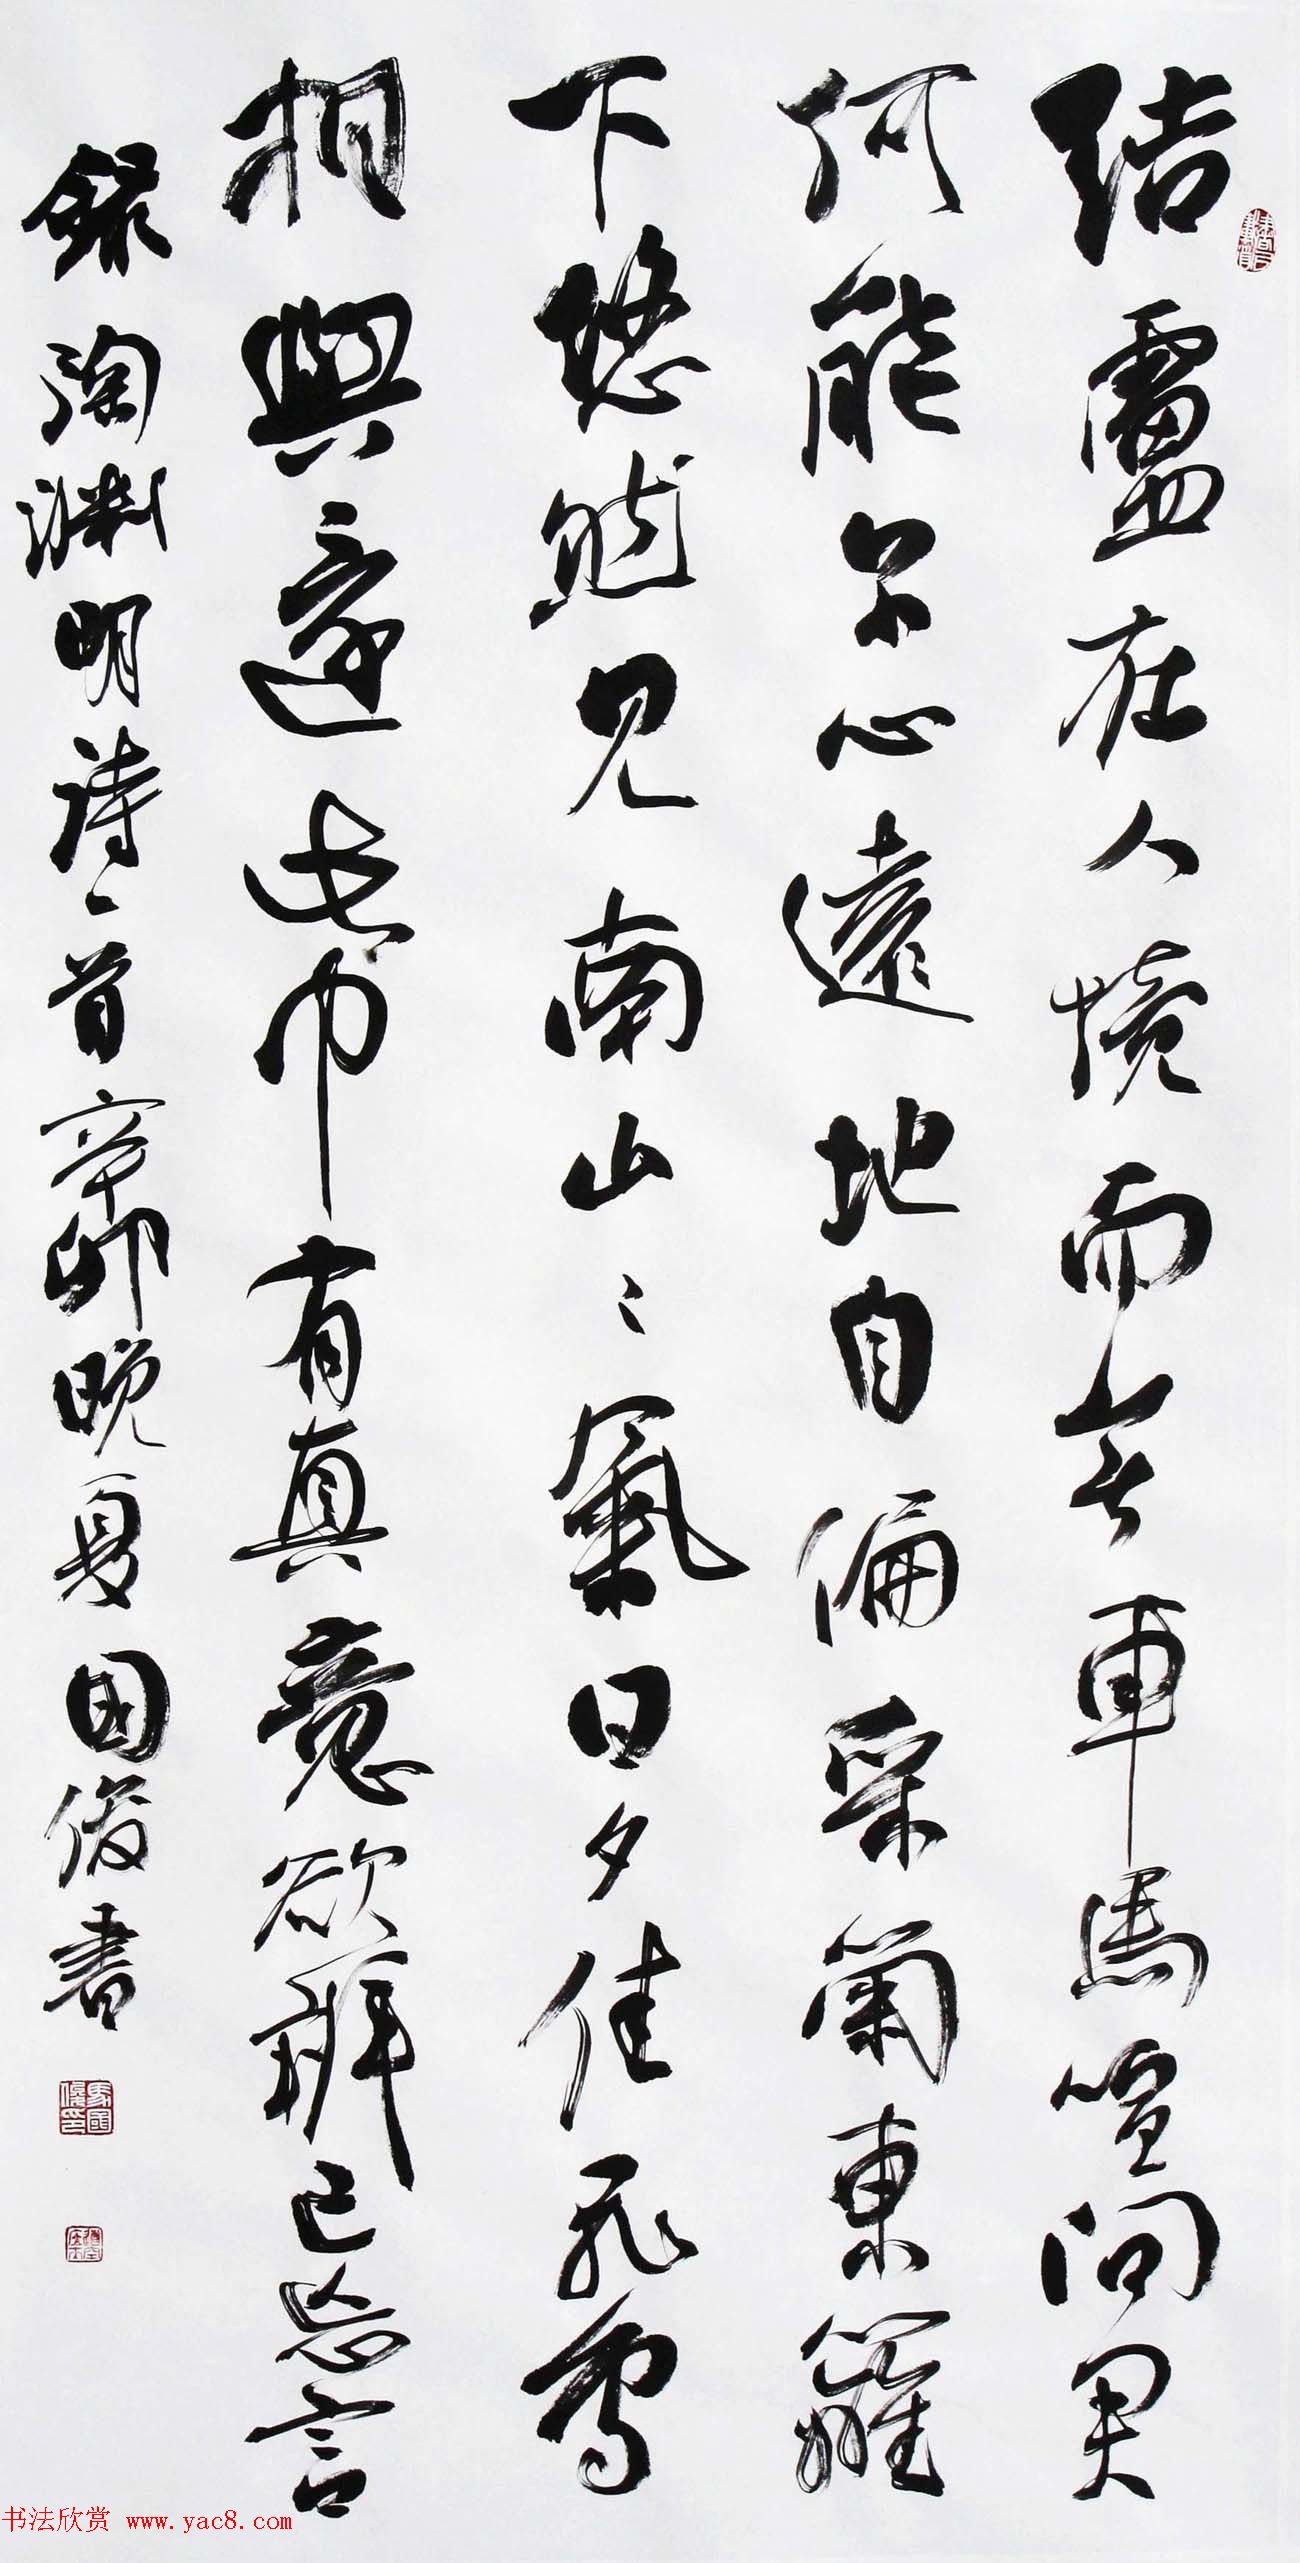 結盧在人境而無車馬喧問君
何能尔心遠地自偏采菊東籬
下悠然見南山々氣日夕佳飛鳥
相與還此中有真意欲辨已忘言
録陶淵明詩一首辛卯晚夏国俊書
馬國俊印
书法欣赏 www.yac8.com